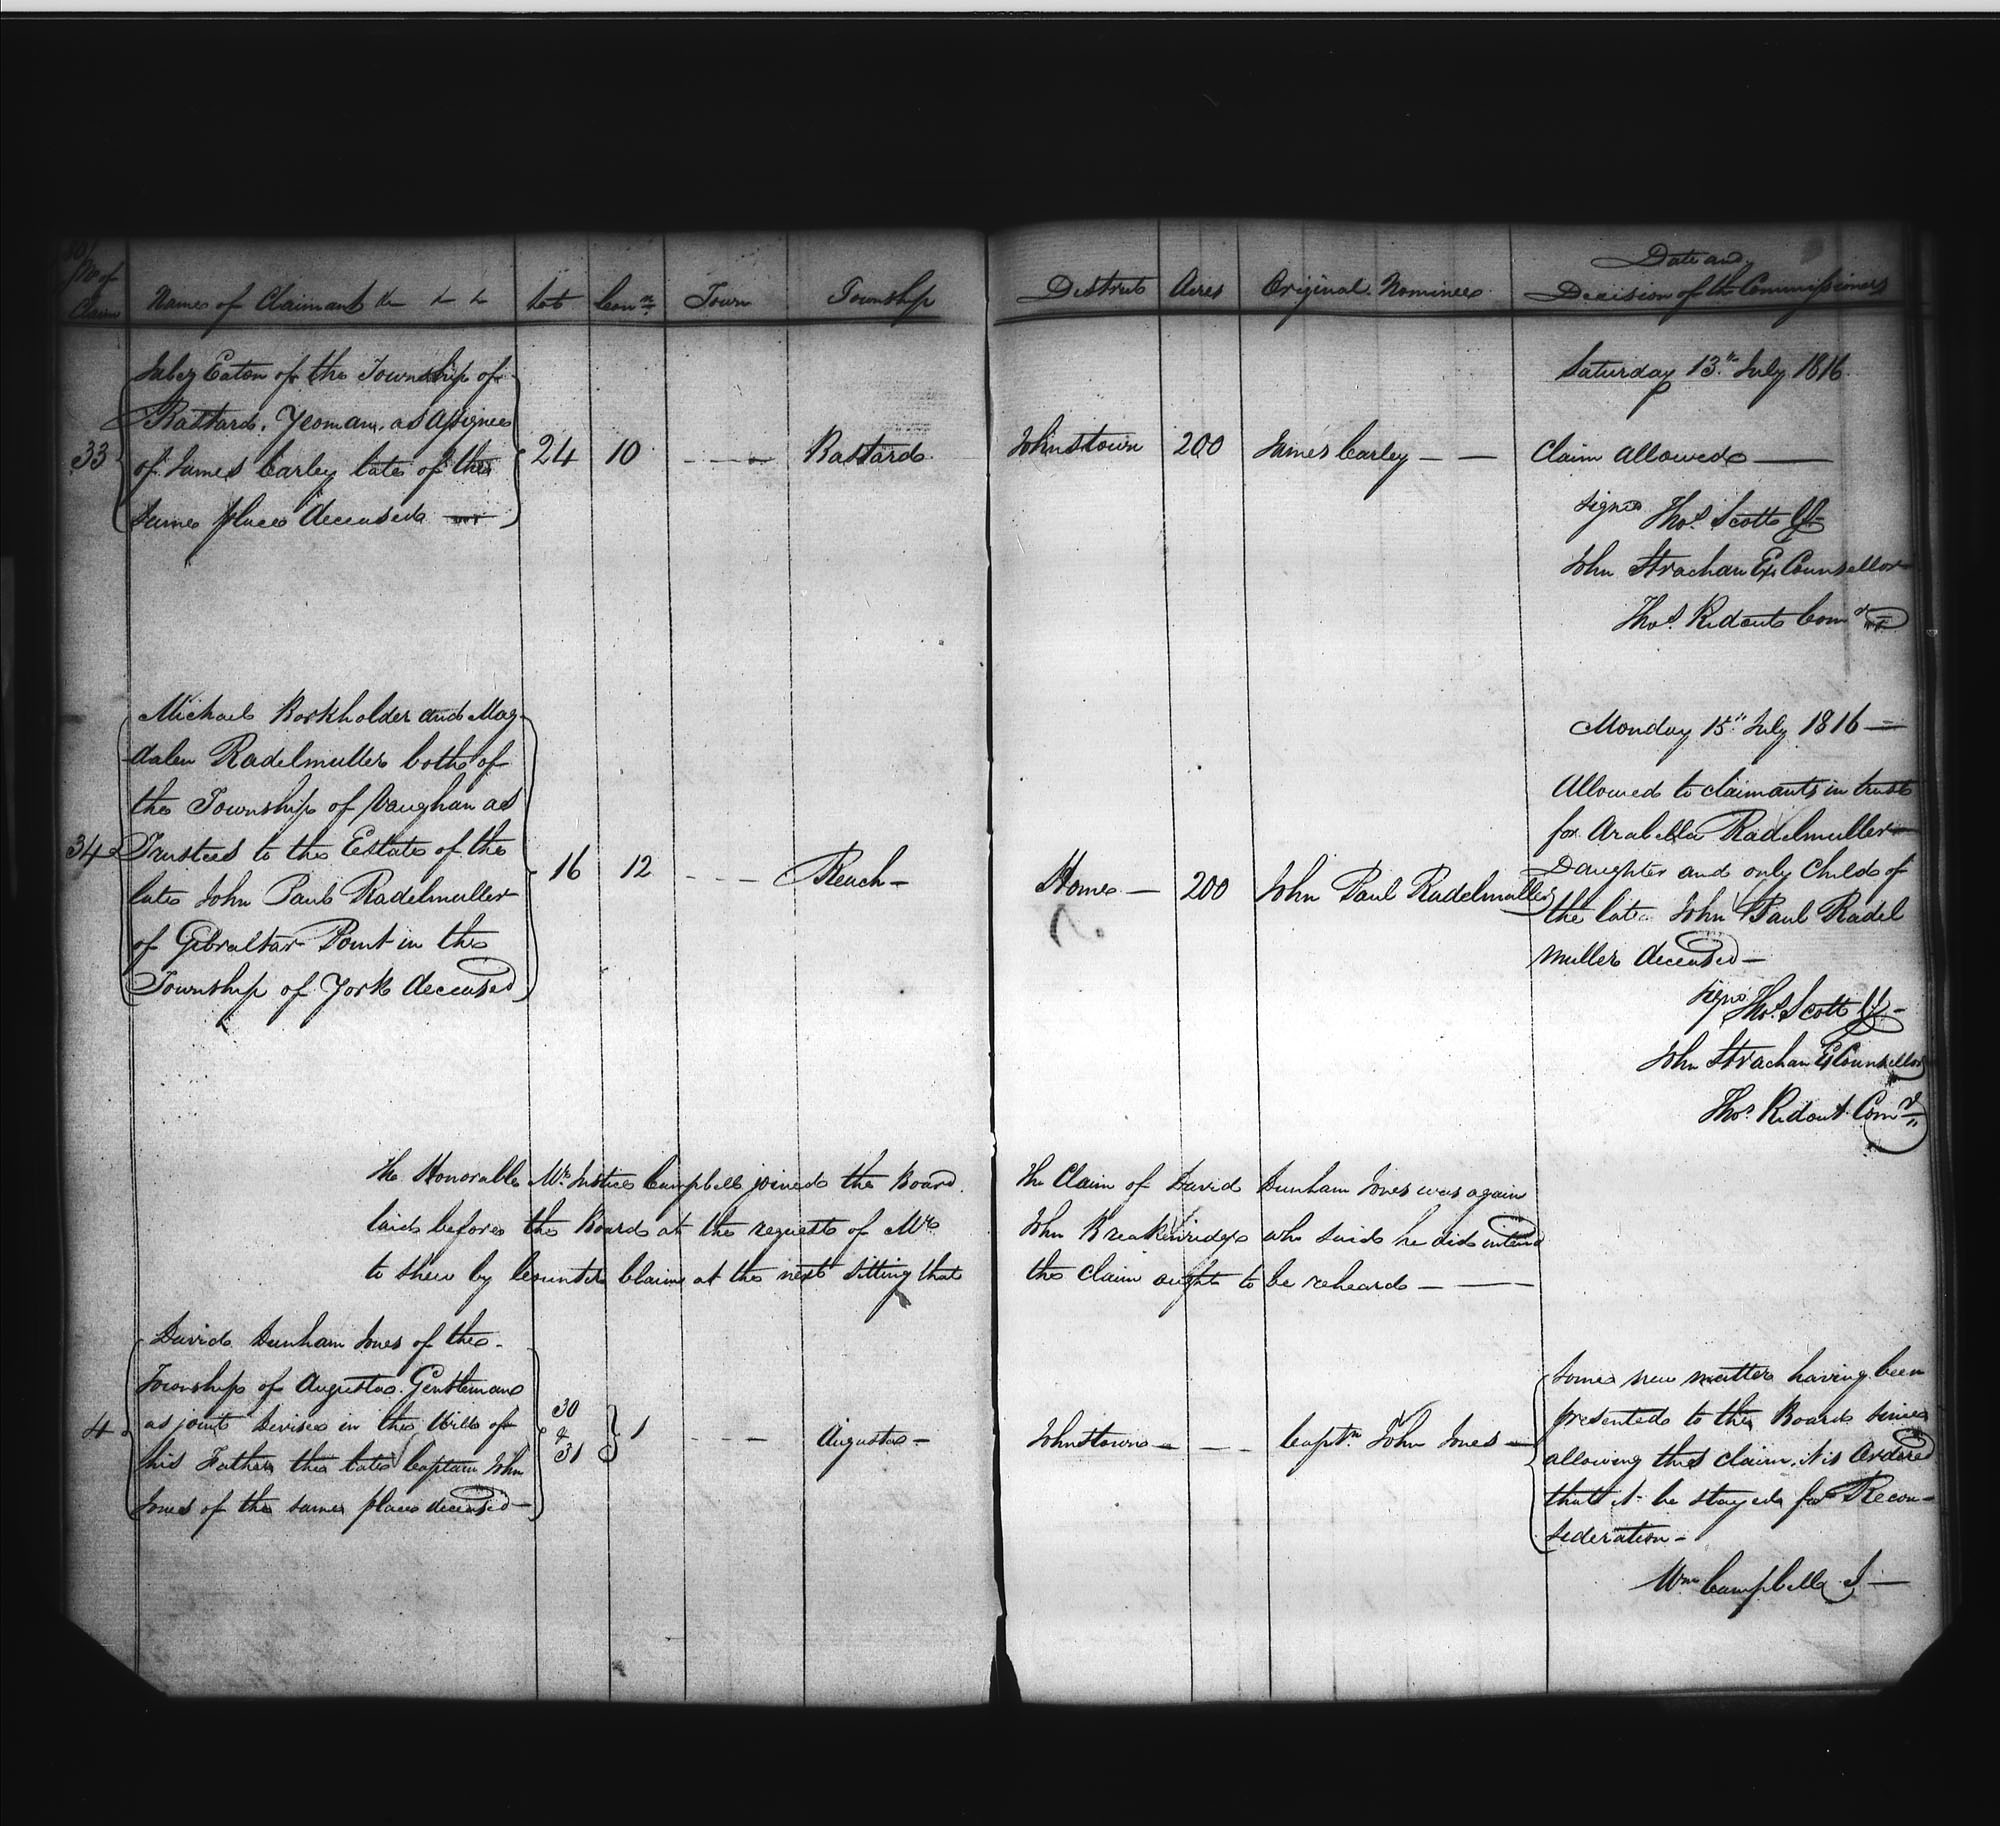 No of
Claim
Names of Claimant &c &c &c
Lot
Conn.
Town
Township
District
Acres
Original Nominee
Date and
Decision of the Commissioners
33
Jabez Eaton of the Township of
Bastard, Yeoman, as assignee
of James Carley late of the
same place deceased
24
10
Bastard
Johnstown
200
James Carley
Saturday 13th July 1816
Claim allowed
signed Thos. Scott CJ
John Strachan Ex Counsellor
Thos. Ridout Comr
34
Michael Borkholder and Mag-
dalen Radelmuller both of
the Township of Vaughan as
Trustees to the Estate of the
late John Paul Radelmuller
of Gibraltar Point in the
Township of York deceased
16
12
Reach
Home
200
John Paul Radelmuller
Monday 15th July 1816
Allowed to claimants in trust
for Arabella Radelmuller
Daughter and only Child of
the late John Paul Radel
muller deceased
signd Thos. Scott CJ
John Strachan Ex Counsellor
Thos. Ridout Comr
The Honorable Mr. Justice Campbell joined the Board. The Claim of David Dunham Jones was again
laid before the Board at the request of Mr John Breakenridge who said he did intend
to shew by Counter Claim at the next sitting that the claim ought to be reheard
4
David Dunham Jones of the
Township of Augusta Gentleman
as joint Devisee in the Will of
his Father the late Captain John
Jones of the same place deceased
30
&
31
1
Augusta
Johnstown
Captn. John Jones
Some new matter having been
presented to the Board since
allowing this claim, it is Ordered
that it be stayed for Recon-
sederation
Wm Campbell J